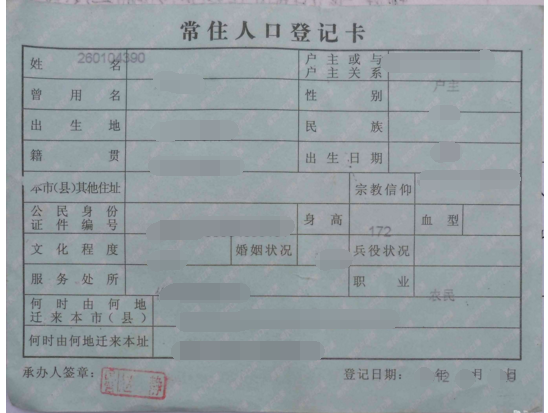 常住人口登记卡
260104390
姓名 户主或与户主关系 户主
曾用名 性别
出生地 民族
籍贯 出生日期
本市(县)其他住址 宗教信仰
公民身份证件编号 身高 172 血型
文化程度 婚姻状况 兵役状况
服务处所 职业 农民
何时由何地迁来本市(县)
何时由何地迁来本址
承办人签章: 登记日期: 年 月 日